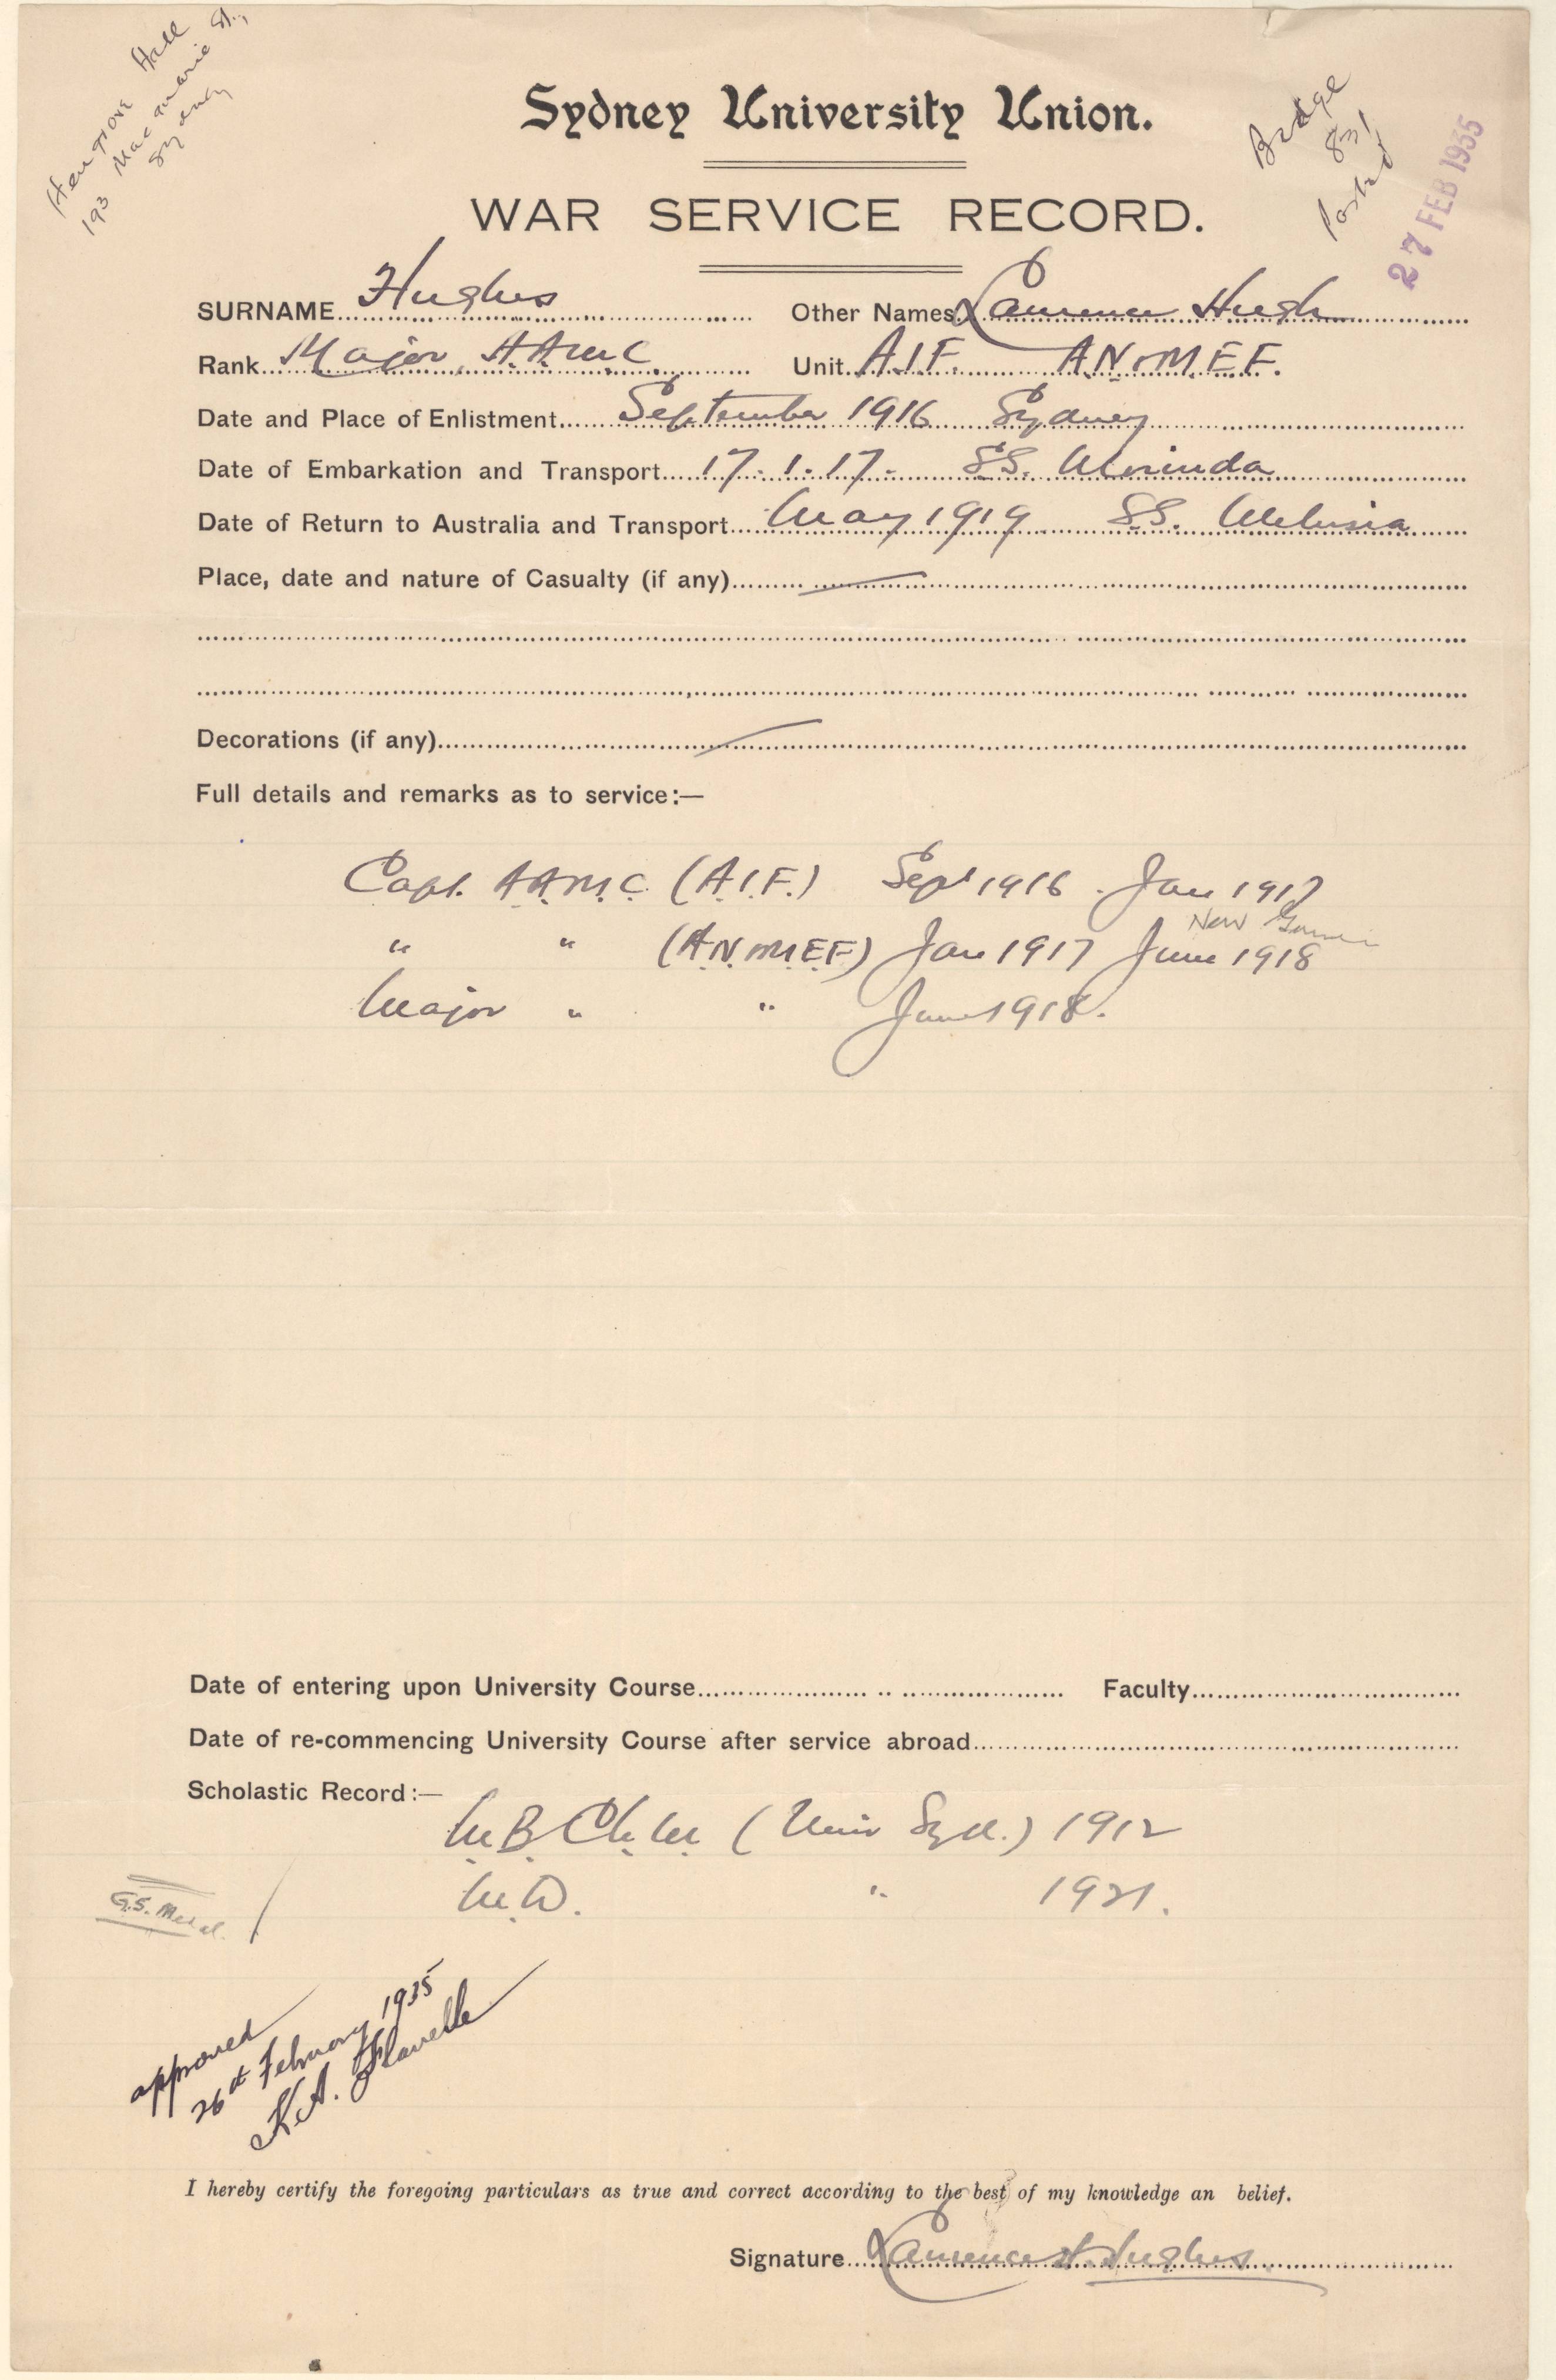 Hengrove Hall
193 Macquarie St.,
Sydney
Badge
831
Posted
27 FEB 1935
Sydney University Union.
WAR SERVICE RECORD.
SURNAME Hughes Other Names Laurence Hugh
Rank Major A.A.M.C. Unit A.I.F. A.N. & M.E.F.
Date and Place of Enlistment September 1916 Sydney
Date of Embarkation and Transport 17.1.17. SS. Morinda
Date of Return to Australia and Transport May 1919 SS. Melusia
Place, date and nature of Casualty (if any)
Decorations (if any)
Full details and remarks as to service:—
Capt. A.A.M.C. (A.I.F.) Sept 1916 . Jan 1917
New Guinea
" " (A.N. & M.E.F.) Jan 1917 June 1918
Major " " June 1918.
Date of entering upon University Course Faculty
Date of re-commencing University Course after service abroad
Scholastic Record:—
M.B. Ch.M. (Univ Syd.) 1912
M.D. " 1921.
G.S. Medal.
approved
26th February 1935
K.A. Flavelle
I hereby certify the foregoing particulars as true and correct according to the best of my knowledge an belief.
Signature Laurence H. Hughes